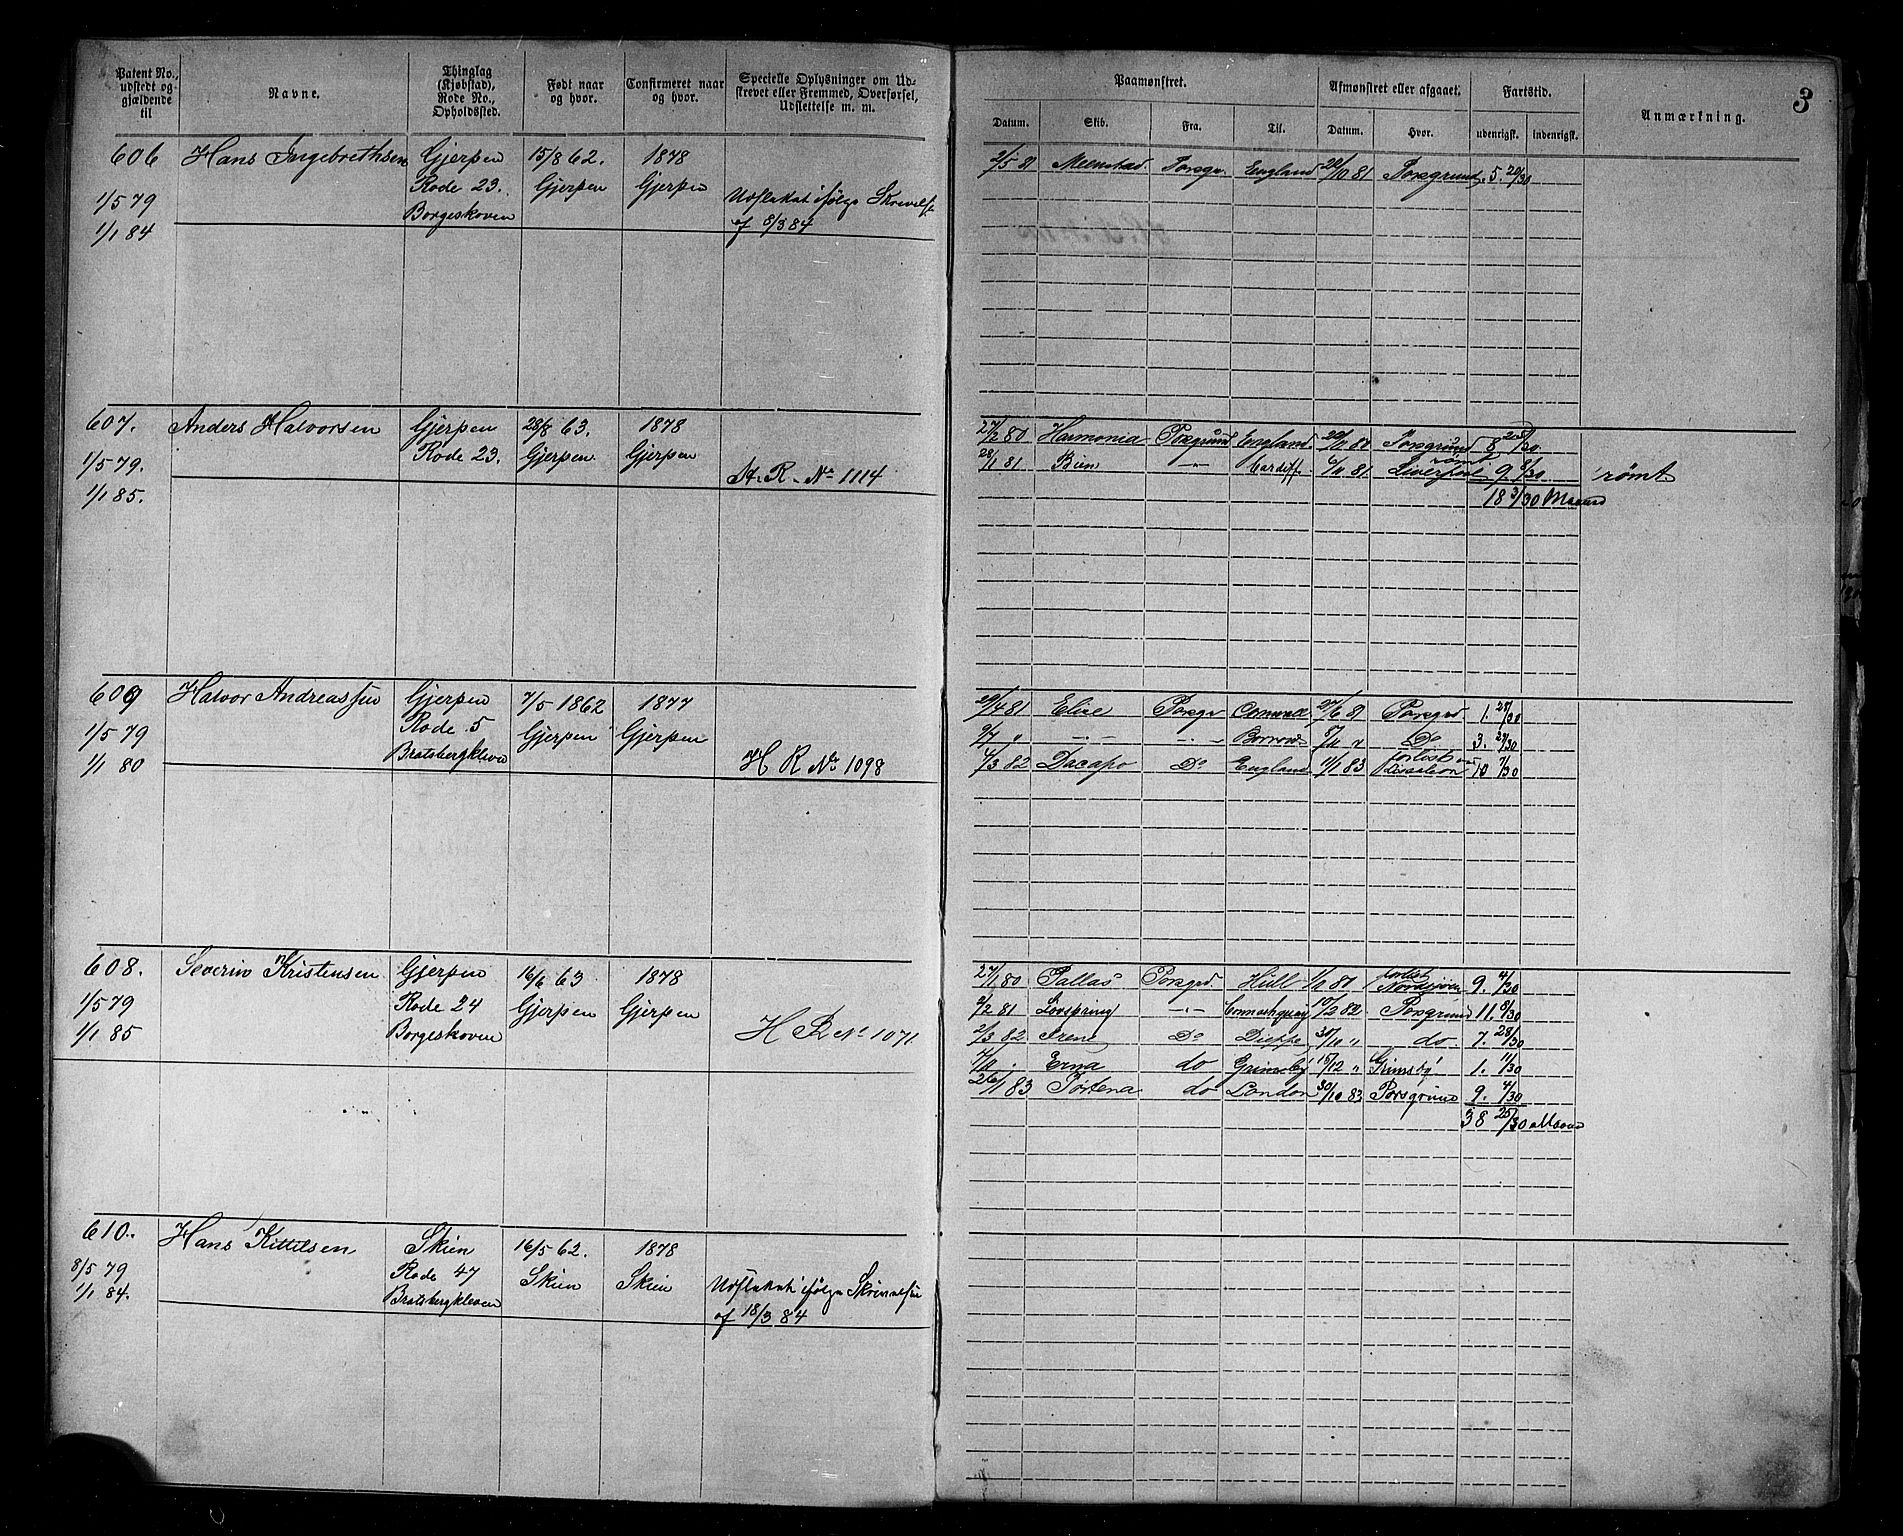 Patent No., udstedt og gjældende til
Navne.
Thinglag (Kjøbstad), Rode No., Opholdssted.
Født naar og hvor.
Confirmeret naar og hvor.
Specielle Oplysninger om Udskrevet eller Fremmed, Overførsel, Udslettelse m. m.
Paamønstret.
Afmønstret eller afgaaet.
Fartstid.
Anmærkning.
3
Datum. Skib. Fra. Til. Datum. Hvor. udenrigsk. indenrigsk.
606 Hans Ingebrethsen Gjerpen 15/8 62. 1878
Rode 23. Gjerpen Gjerpen
1/5 79 Borgeskoven
1/1 84 af 8/3 84
2/5 81 Porsgr. England 81 Porsgrund 5. 20/30
607. Anders Halvorsen Gjerpen 28/8 63. 1878
1/5 79. Rode 23. Gjerpen Gjerpen
1/1 85. A. R. No 1114
27/2 80 Harmonia Porsgrund England Porsgrund 8
28/1 81 Bien -"- Cardiff 6/11 81 rømt Liverpool 9. 8/30 rømt
18 3/30 Maaned
609 Halvor Andreassen Gjerpen 7/5 1862 1877
1/5 79 Rode 5 Gjerpen Gjerpen
1/1 80 Bratsbergkleven H R No 1098
29/4 81 Elise Porsgr 27/6 81 Porsgrd 1. 28/30
-"- -"- Do 3. 29/30
4/3 82 Dacapo Do England 11/1 83 forlist 10 7/30
608. Severin Kristensen Gjerpen 16/6 63 1878
1/5 79 Rode 24 Gjerpen Gjerpen
1/1 85 Borgeskoven H R No 1071
27/1 80 Pallas Porsgrd. Hull forlist Nordsjøen 9. 4/30
2/2 81 Lovspring -"- 10/2 82 Porsgrund 11. 8/30
2/3 82 Irene Do Dieppe 30/10 " do. 7. 28/30
Erna do Grimsby 15/12 " Grimsby 1. 11/30
26/1 83 do London 30/10 83 Porsgrund 9. 4/30
38 25/30 Maaned
610. Hans Kittilsen Skien 16/5 62. 1878
8/5 79 Rode 47 Skien Skien
1/1 84. Bratsbergkleven
af 18/3 84